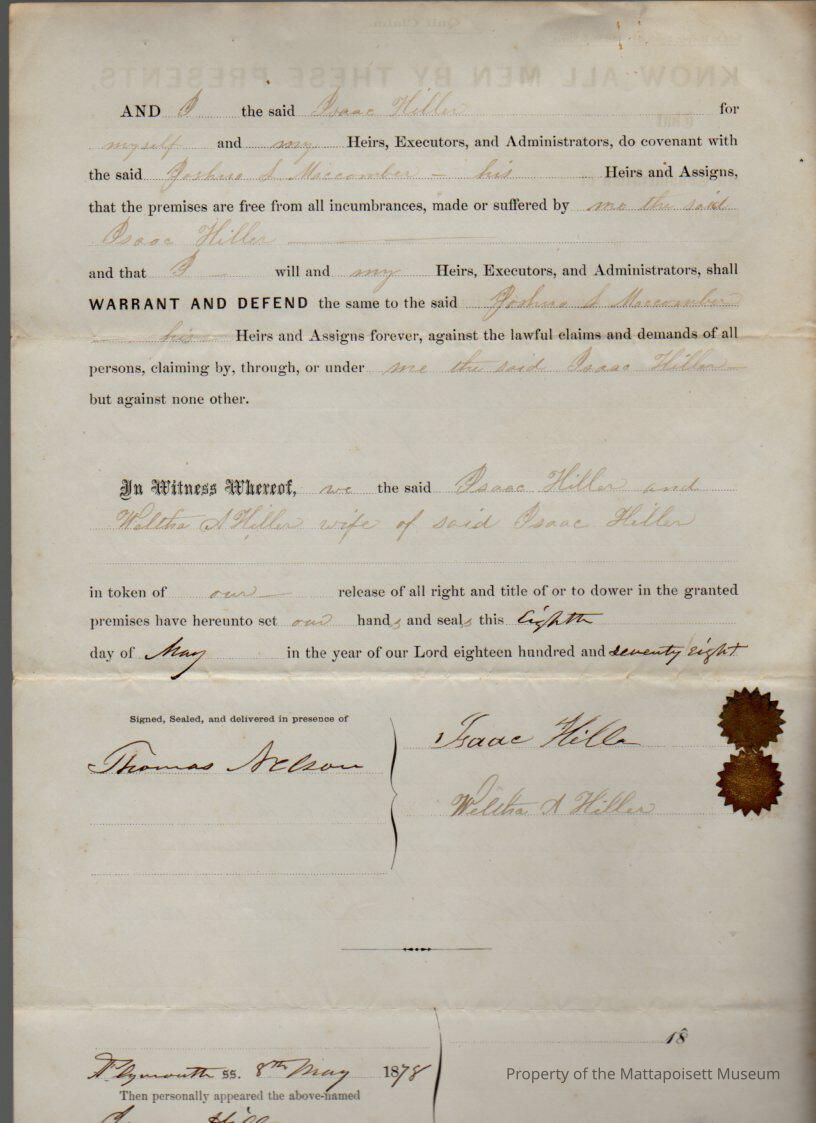 AND I the said Isaac Hiller for
myself and my Heirs, Executors, and Administrators, do covenant with
the said Joshua L Maccomber - his Heirs and Assigns,
that the premises are free from all incumbrances, made or suffered by me the said
Isaac Hiller
and that I will and my Heirs, Executors, and Administrators, shall
WARRANT AND DEFEND the same to the said Joshua L Maccomber
his Heirs and Assigns forever, against the lawful claims and demands of all
persons, claiming by, through, or under me the said Isaac Hiller
but against none other.
In Witness Whereof, we the said Isaac Hiller and
Weltha A Hiller wife of said Isaac Hiller
in token of our release of all right and title of or to dower in the granted
premises have hereunto set our hands and seals this Eighth
day of May in the year of our Lord eighteen hundred and seventy eight
Signed, Sealed, and delivered in presence of
Isaac Hiller
Thomas Nelson
Weltha A Hiller
18
Plymouth ss. 8th May 1878
Property of the Mattapoisett Museum
Then personally appeared the above-named